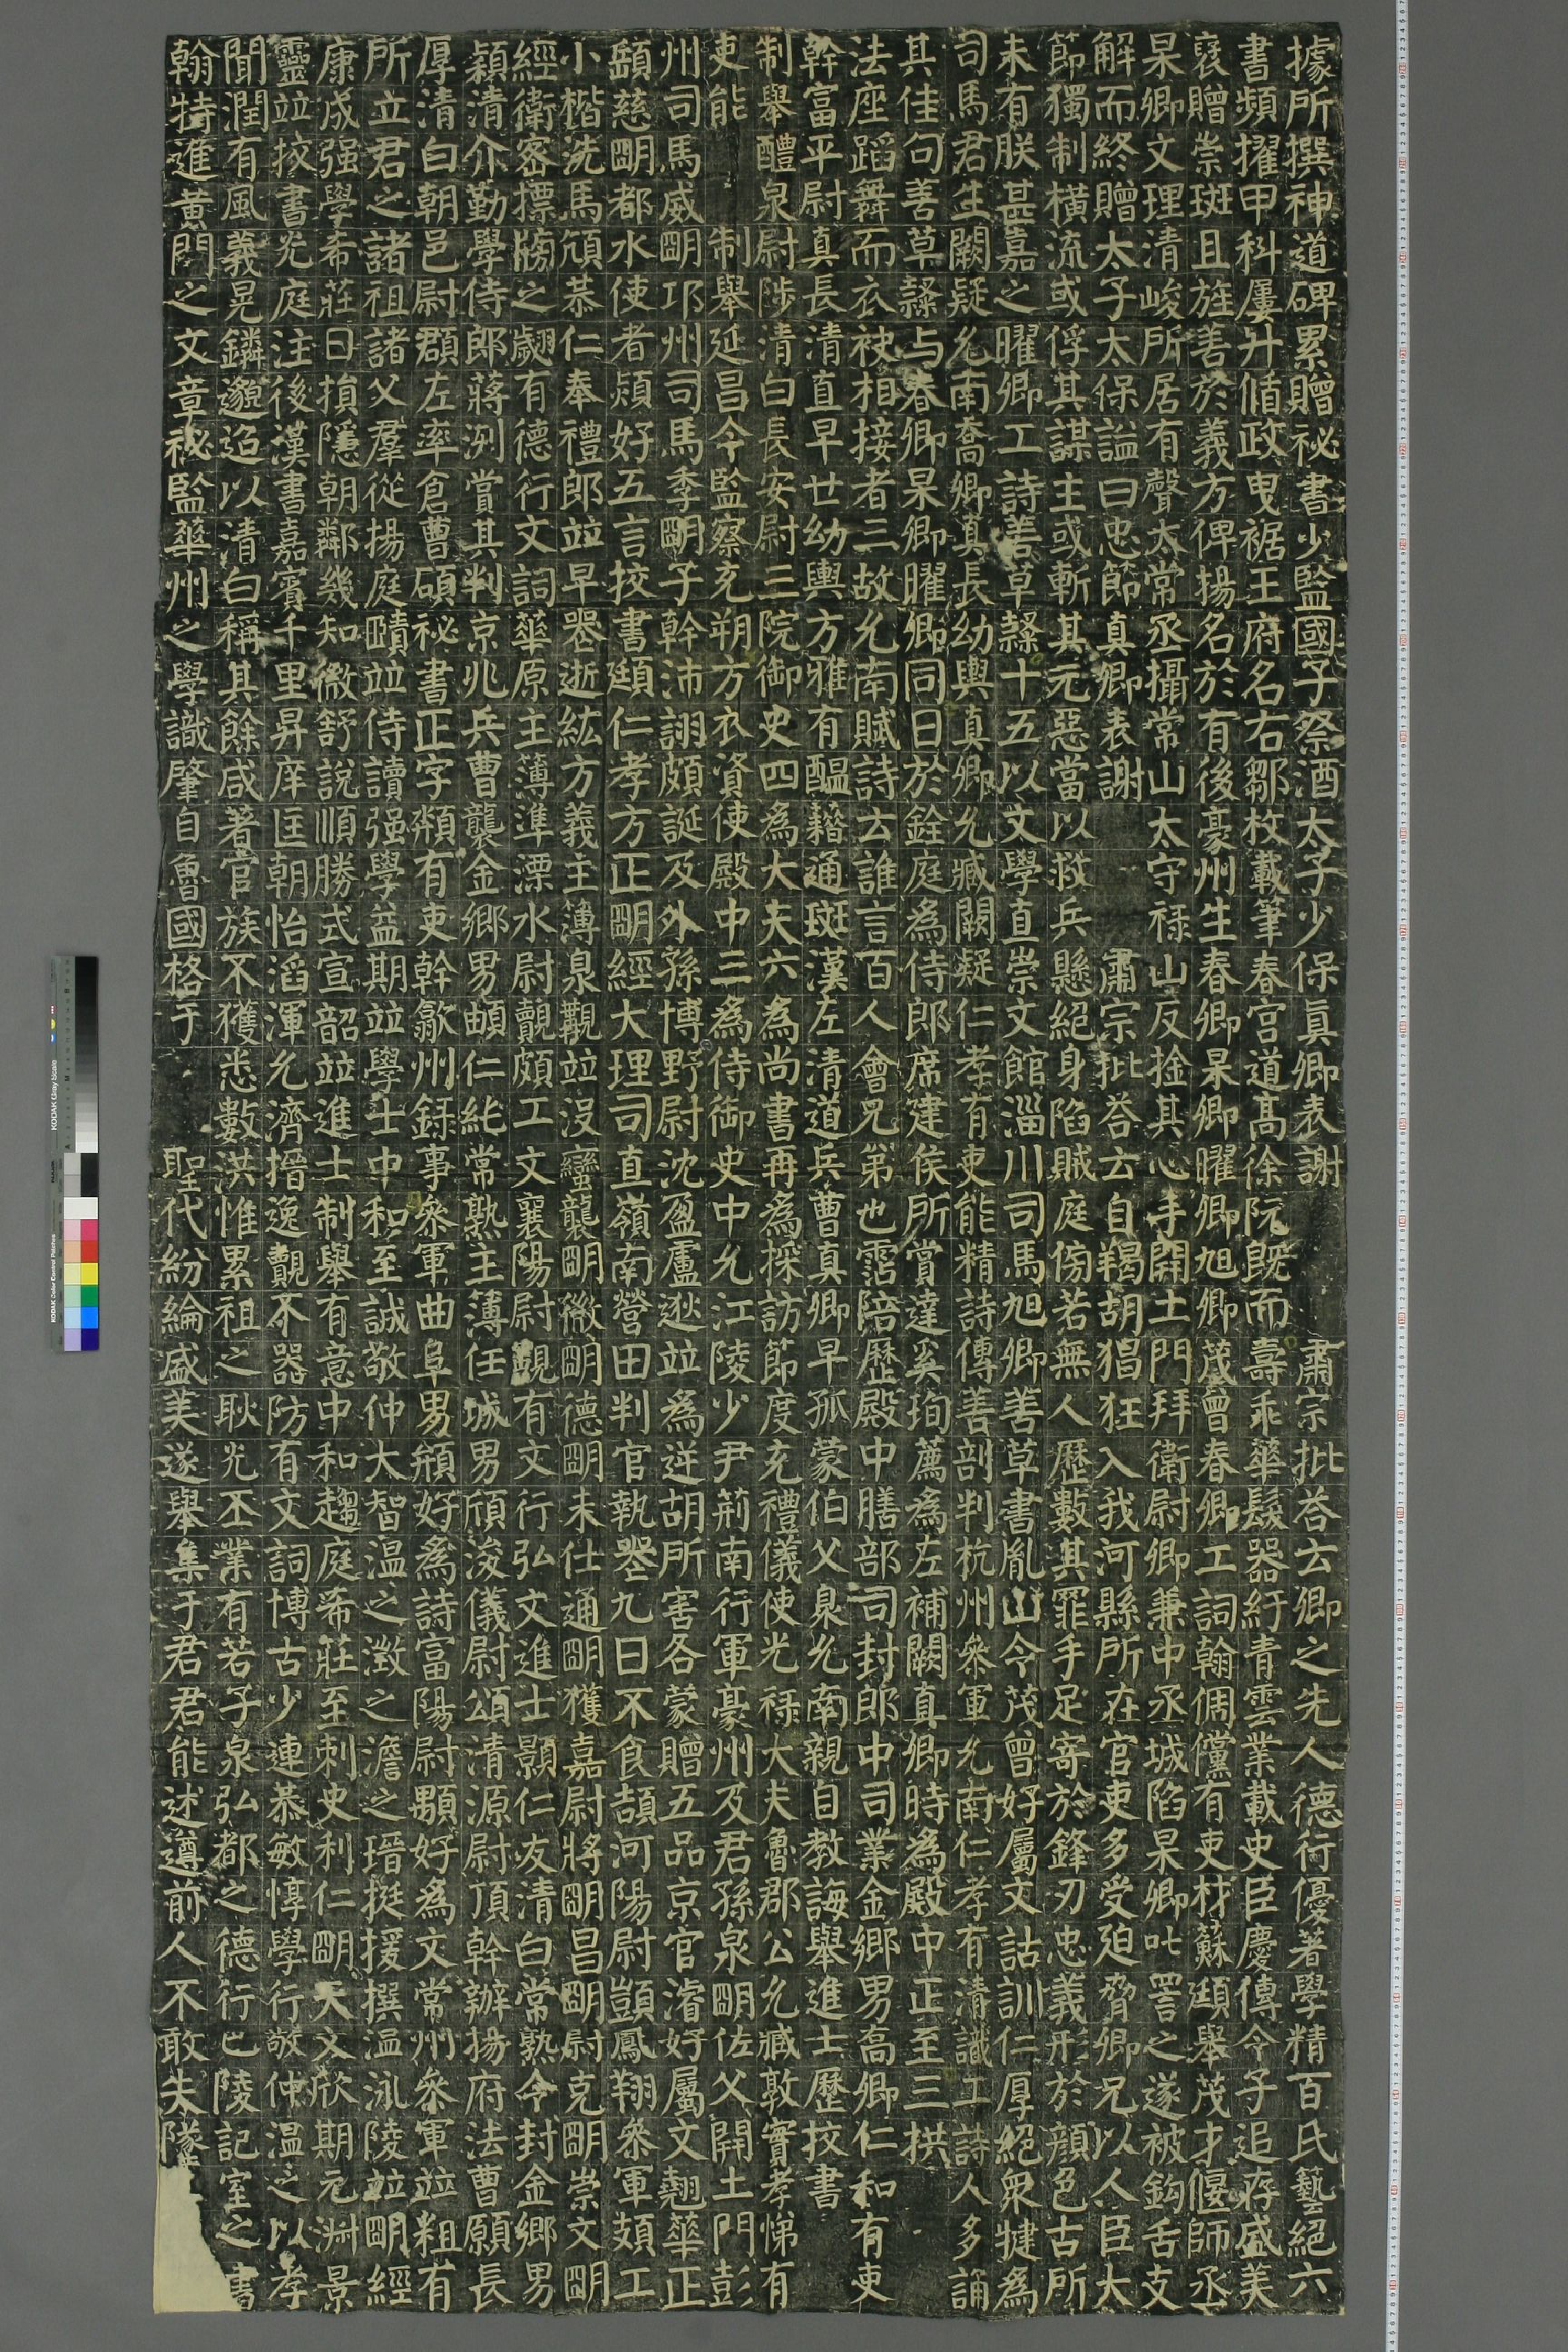 據所撰神道碑累贈祕書少監國子祭酒太子少保真卿表謝肅宗批荅云卿之先人德行優著學精百氏藝絕六
書頻擢甲科屢升憄政曳裾王府名右鄒枚載筆春宮道高徐阮旣而壽乖華髮器紆青雲業載史臣慶傳令子追存盛美
襃贈崇班且旌善於義方俾揚名於有後豪州生春卿杲卿曜卿旭卿茂曾春卿工詞翰倜儻有吏材蘇頲舉茂才偃師丞
杲卿文理清峻所居有聲太常丞攝常山太守祿山反捡其心手開土門拜衛尉卿兼中丞城陷杲卿叱詈之遂被鈎舌支
解而終贈太子太保謚曰忠節真卿表謝肅宗批荅云自羯胡猖狂入我河縣所在官吏多受迫脅卿兄以人臣大
節獨制橫流或俘其謀主或斬其元惡當以救兵懸絕身陷賊庭傍若無人歷數其罪手足寄於鋒刃忠義形於顏色古所
未有朕甚嘉之曜卿工詩善草隸十五以文學直崇文館淄川司馬旭卿善草書胤山令茂曾好屬文詁訓仁厚絕衆犍為
司馬君生闕疑允南喬卿真長幼輿真卿允臧闕疑仁孝有吏能精詩傳善剖判杭州叅軍允南仁孝有清識工詩人多誦
其佳句善草隸与春卿杲卿曜卿同日於銓庭為侍郎席建侯所賞達奚珣薦為左補闕真卿時為殿中正至三拱
法座蹈舞而衣袂相接者三故允南賦詩云誰言百人會兄弟也霑陪歷殿中膳部司封郎中司業金鄉男高卿仁和有吏
幹富平尉真長清直早世幼輿方雅有醞藉通班漢左清道兵曹真卿早孤蒙伯父臮允南親自教誨舉進士歷挍書
制舉醴泉尉陟清白長安尉三院御史四為大夫六為尚書再為採訪節度充禮儀使光祿大夫魯郡公允臧敦實孝悌有
吏能制舉延昌令監察充朔方衣資使殿中三為侍御史中允江陵少尹荊南行軍豪州及君孫泉明佐父開土門彭
州司馬威明邛州司馬季明子幹沛詡頗誕及外孫博野尉沈盈盧逖竝為逆胡所害各蒙贈五品京官濬好屬文翹華正
頲慈明都水使者熲好五言挍書頲仁孝方正明經大理司直嶺南營田判官執喪九日不食頡河陽尉顗鳳翔叅軍頍工
小楷洗馬頎恭仁奉禮郎竝早喪逝紘方義主簿泉覯竝沒蠻龔明徽明德明未仕通明獲嘉尉將明昌明尉克明崇文明
經衛密摽牓之翽有德行文詞華原主薄準溧水尉覿頗工文襄陽尉覬有文行弘文進士顯仁友清白常熟令封金鄉男
頴清介勤學侍郎蔣洌賞其判京兆兵曹襲金鄉男頔仁純常熟主簿任城男頎浚儀尉頌清源尉頂幹辦揚府法曹願長
厚清白朝邑尉頵左率倉曹碩祕書正字頫有吏幹歙州錄事叅軍曲阜男頖好為詩富陽尉顒好為文常州叅軍竝粗有
所立君之諸祖諸父羣從揚庭賾竝侍讀强學益期竝學士中和至誠敬仲大智溫之澂之澹之瑨挺援撰溫泳陵竝明經
康成强學希莊日損隱朝鄰幾知微舒說順勝式宣韶竝進士制舉有意中和趨庭希莊至刺史利仁明天文欣期元淑景
靈竝挍書光庭注後漢書嘉賓千里昇庠匡朝怡滔渾允濟搢逸覿不器防有文詞博古少連恭敏惇學行敬仲溫之以孝
聞潤有風義晃鏻邈迨以清白稱其餘咸著官族不獲悉數洪惟累祖之耿光丕業有若子泉弘都之德行巴陵記室之書
翰特進黃門之文章祕監華州之學識肇自魯國格于聖代紛綸盛美遂舉集于君君能述遵前人不敢失隧